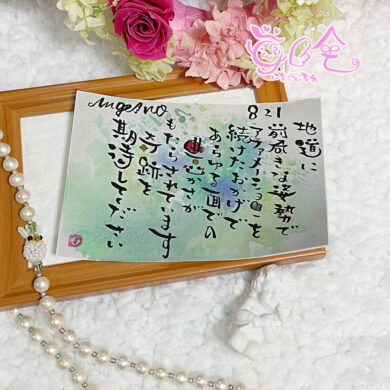 AngeAno
821
地道に
前向きな姿勢で
アファメーションを
続けたおかげで
あらゆる面での
豊かさが
もたらされています
奇跡を
期待してください